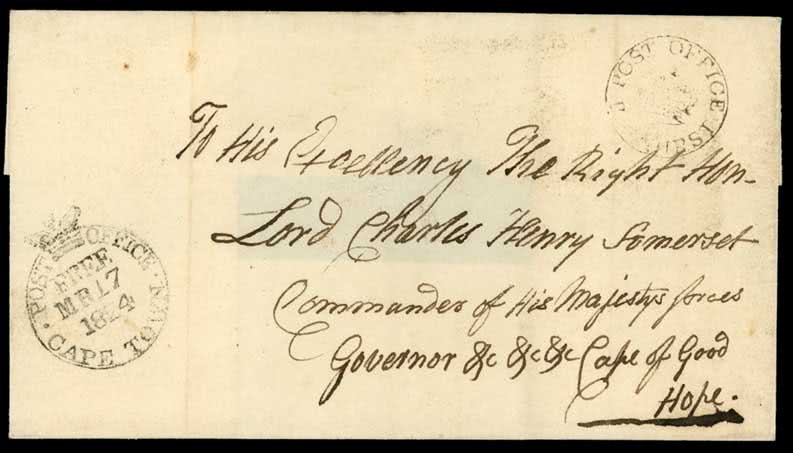 POST OFFICE
To His Excellency The Right Hon-
Lord Charles Henry Somerset
Commander of His Majestys forces
Governor &c &c &c Cape of Good
Hope.
POST OFFICE · CAPE TOWN ·
FREE
MR 17
1824